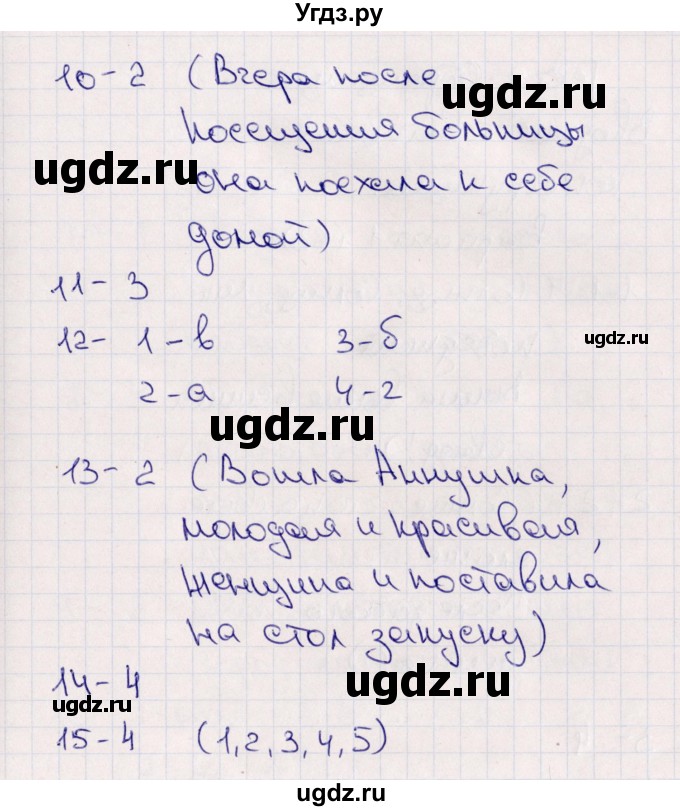 Угдз.ру
10-2 (Вчера после
посещения больницы
она поехала к себе
домой)
11-3
12- 1-в 3-б
2-а 4-г
13-2 (Вошла Аннушка,
молодая и красивая,
женщина и поставила
на стол закуску)
14-4
15-4 (1,2,3,4,5)
ugdz.ru
ugdz.ru
ugdz.ru
ugdz.ru
ugdz.ru
ugdz.ru
ugdz.ru